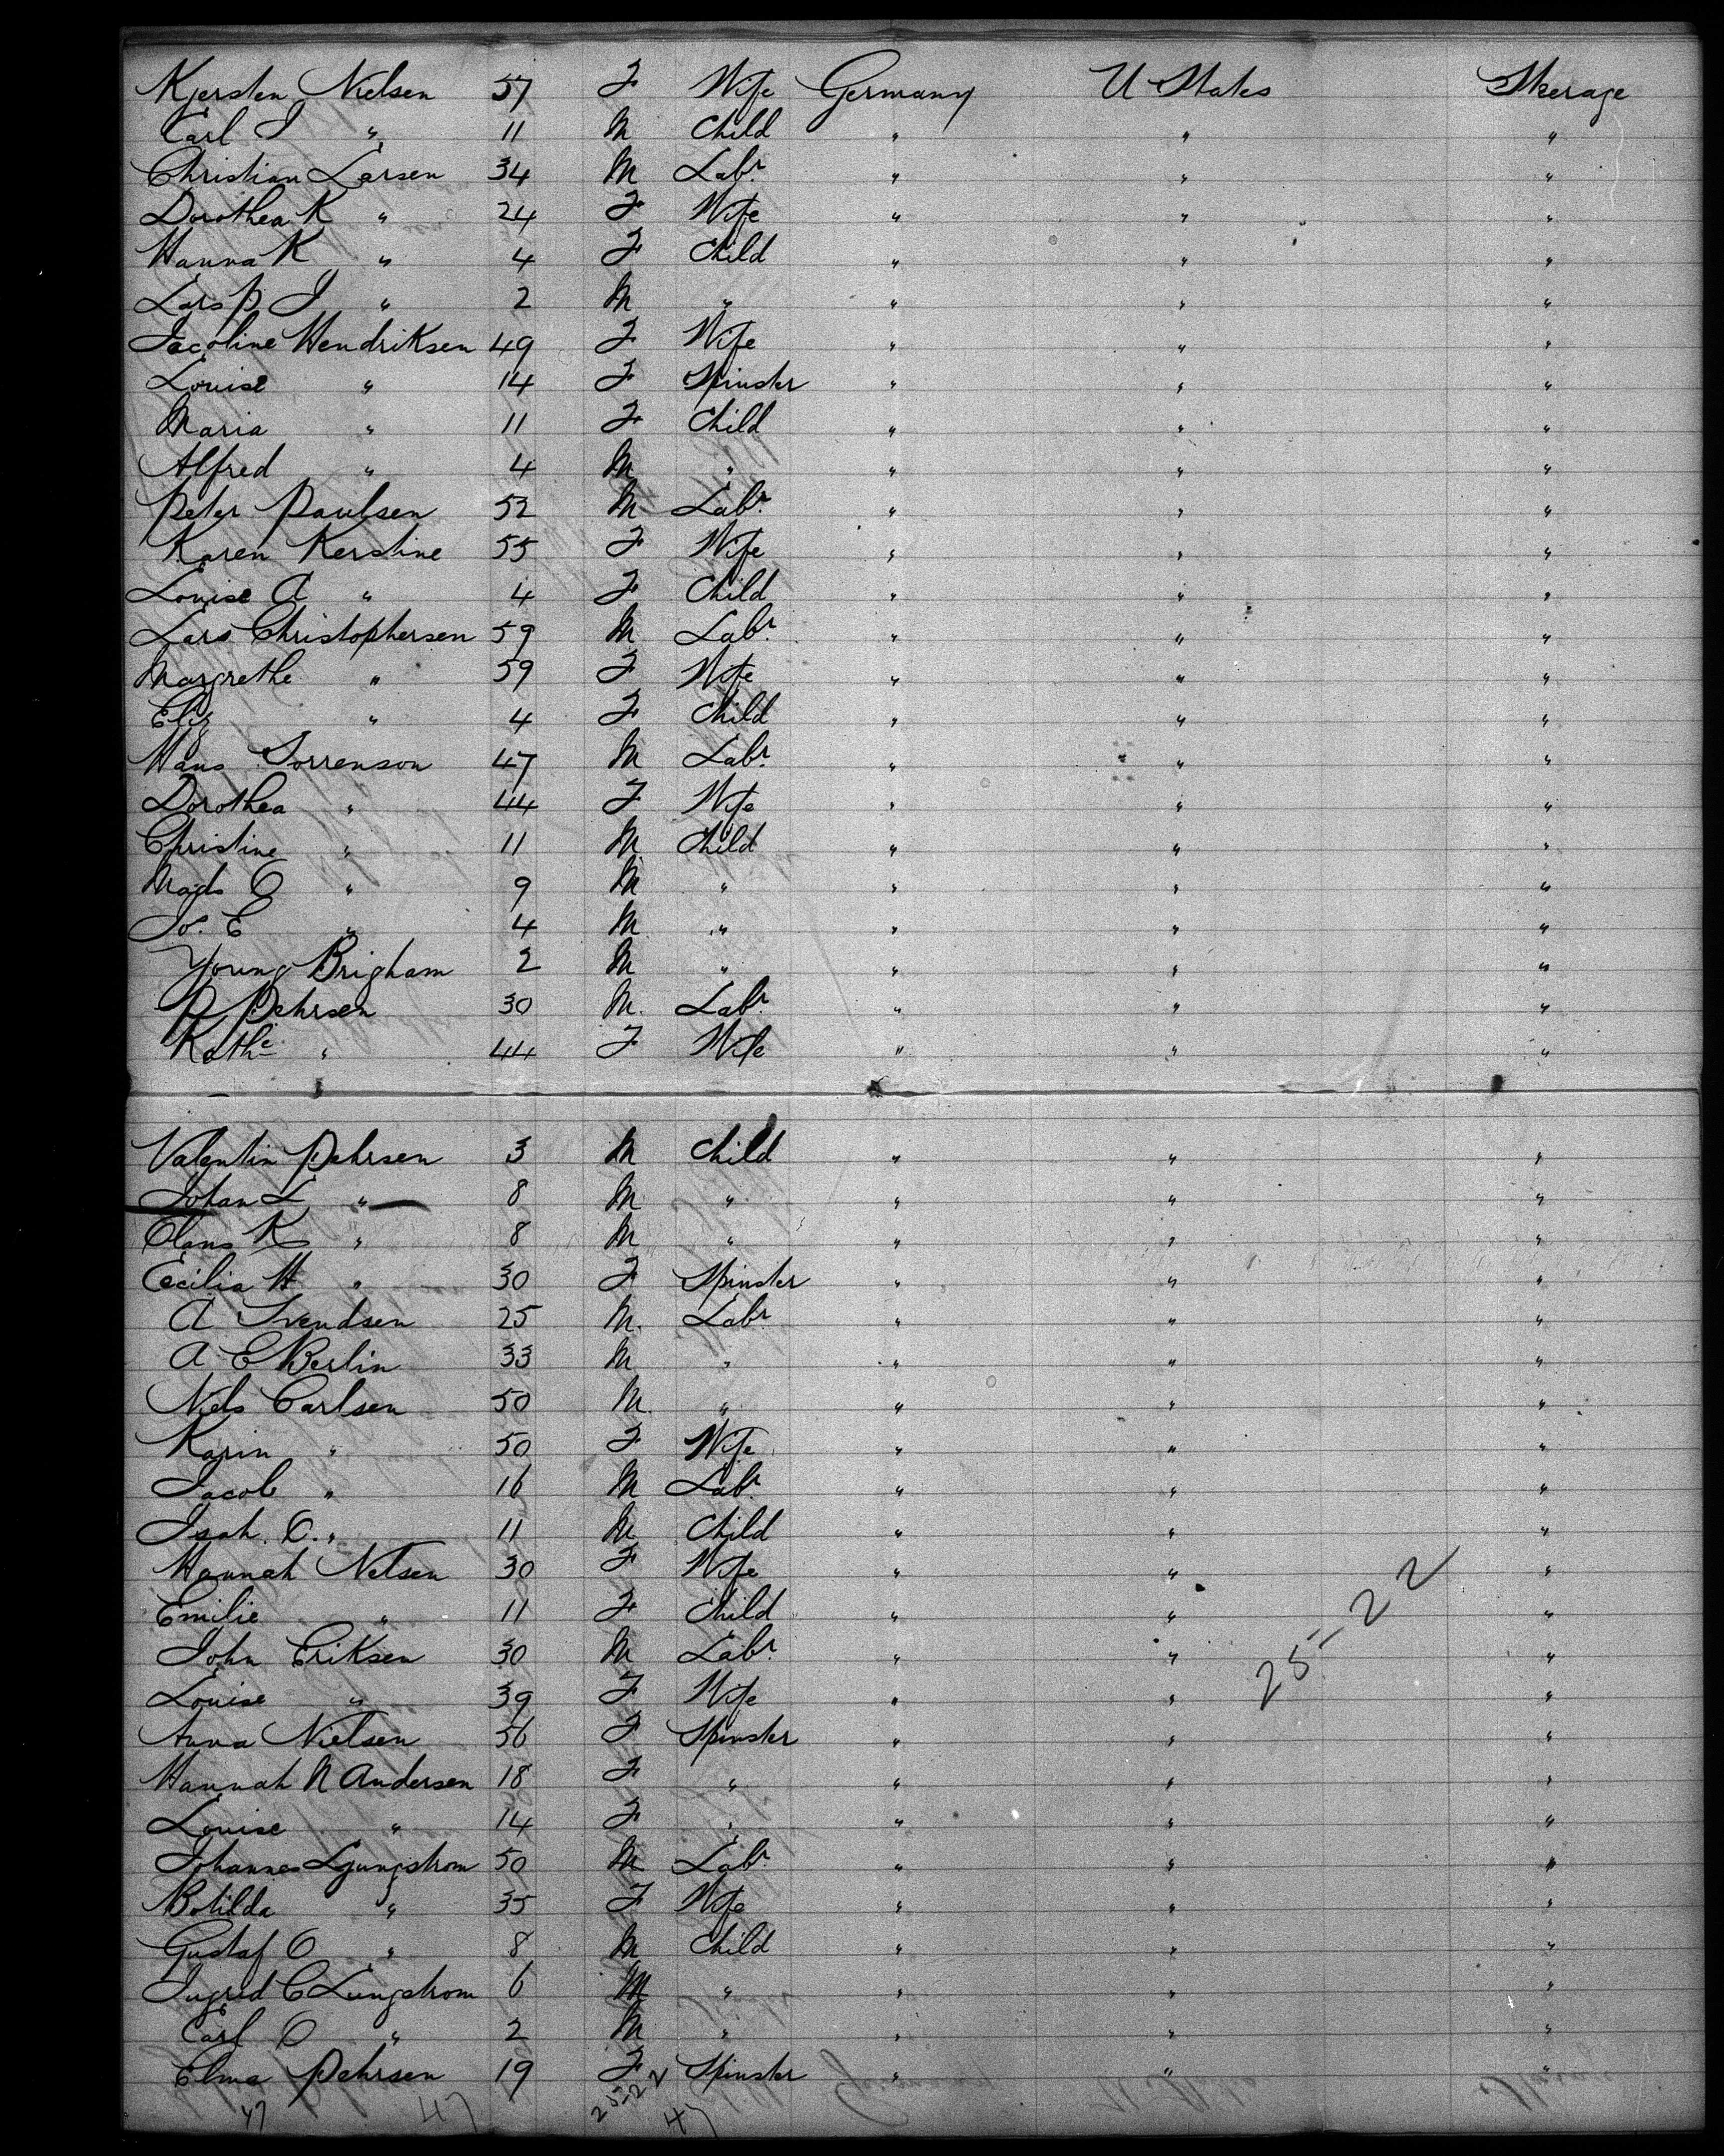 Kjersten Nielsen 57 F Wife Germany U States Steerage
Carl J " 11 M Child " " "
Christian Larsen 34 M Labr " " "
Dorothea K " 24 F Wife " " "
Hanna K " 4 F Child " " "
Lars P. J " 2 M " " " "
Jacoline Hendriksen 49 F Wife " " "
Louise " 14 F Spinster " " "
Maria " 11 F Child " " "
Alfred " 4 M " " " "
Peter Paulsen 52 M Labr " " "
Karen Kerstine 55 F Wife " " "
Louise A " 4 F Child " " "
Lars Christophersen 59 M Labr " " "
Margrethe " 59 F Wife " " "
Eliz " 4 F Child " " "
Hans Sorrenson 47 M Labr " " "
Dorothea " 44 F Wife " " "
Christine " 11 M Child " " "
Mads O " 9 M " " " "
Jo. E " 4 M " " " "
Young Brigham 2 M " " " "
P Pehrsen 30 M. Labr " " "
Kathe " 44 F Wife " " "
Valentin Pehrsen 3 M Child " " "
Johan L " 8 M " " " "
Olans K " 8 M " " " "
Cecilia H " 30 F Spinster " " "
A Svendsen 25 M. Labr " " "
A E Berlin 33 M " " " "
Niels Carlsen 50 M. " " " "
Karin " 50 F Wife " " "
Jacob " 16 M Labr " " "
Isah. O. " 11 M Child " " "
Hannah Nelsen 30 F Wife " " "
Emilie " 11 F Child " " "
John Eriksen 30 M Labr " " "
25-22
Louise " 39 F Wife " " "
Anna Nielsen 56 F Spinster " " "
Hannah N Andersen 18 F " " " "
Louise " 14 F " " " "
Johannes Ljungstrom 50 M Labr " " "
Botilda " 35 F Wife " " "
Gustaf O " 8 M Child " " "
Ingrid C Lungstrom 6 M " " " "
Carl O " 2 M " " " "
Elma Pehrsen 19 F Spinster " " "
47 47 25-22 47